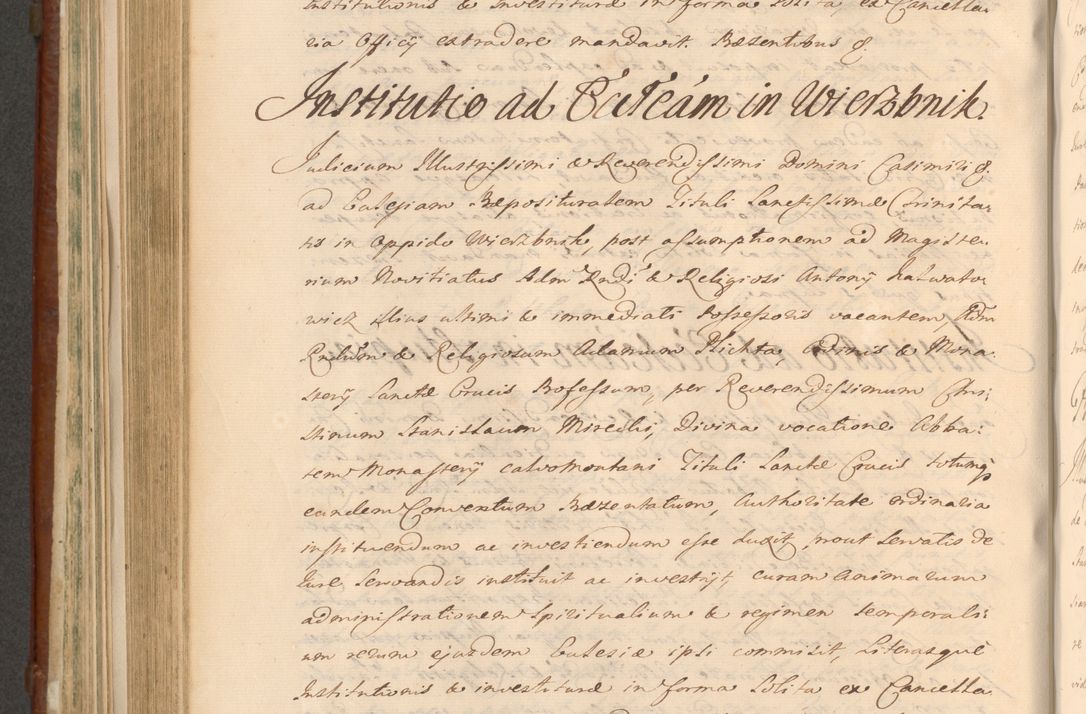 Institutionis & investituræ in forma solita, ex Cancella-
ria Officij extradere mandavit. Præsentibus &.
Institutio ad Eccleam in Wierzbnik.
Judicium Illustrissimi & Reverendissimi Domini Casimiri &.
ad Eclesiam Præposituralem Tituli Sanctissimæ Trinita-
tis in oppido Wierzbnik, post assumptionem ad Magiste-
rium Novitiatus Adm Rndi & Religiosi Antonij Kalwato
wicz illius ultimi & immediati Possessoris vacantem, Adm
Rndum & Religiosum Adamum Plichta, ordinis & Mona
sterij Sanctæ Crucis Professum, per Reverendissimum Chri-
stinum Stanislaum Mirecki, Divina vocatione Abba-
tem Monasterij calvomontani Tituli Sanctæ Crucis totumqs
eundem Conventum Præzentatum, Authoritate ordinaria
instituendum ac investiendum esse duxit, prout servatis de
Iure servandis instituit ac investijt, curam animarum
administrationem spiritualium & regimen temporali-
um rerum ejusdem Eclesiæ ipsi commisit, Literasque
Institutionis & investituræ in forma solita ex Cancella